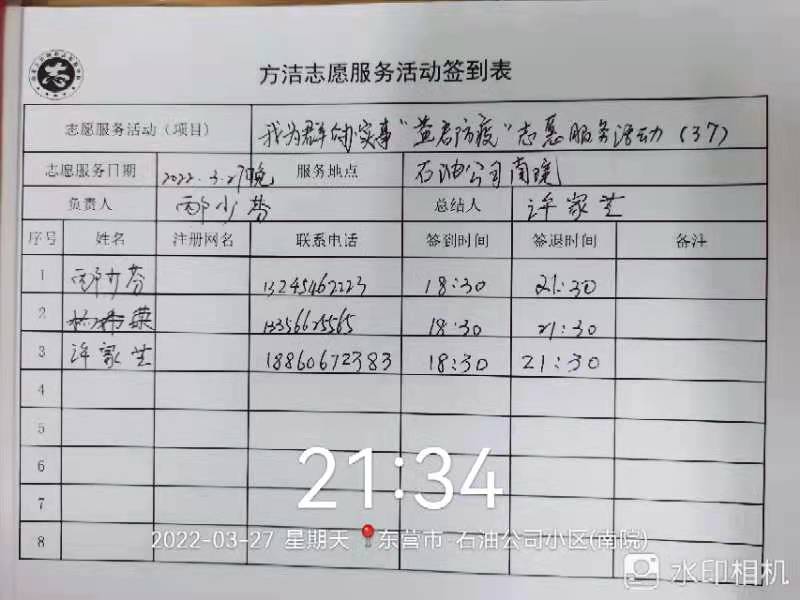 方洁志愿服务活动签到表
志愿服务活动（项目） 我为群众办实事"益君防疫"志愿服务活动（37）
志愿服务日期 2022.3.27晚 服务地点 石油公司南院
负责人 邴少芬 总结人 许家芝
序号 姓名 注册网名 联系电话 签到时间 签退时间 备注
1 邴少芬 13245462223 18:30 21:30
2 13356625565 18:30 21:30
3 许家芝 18860672383 18:30 21:30
4
5
6
7
8
21:34
2022-03-27 星期天 东营市·石油公司小区(南院)
水印相机